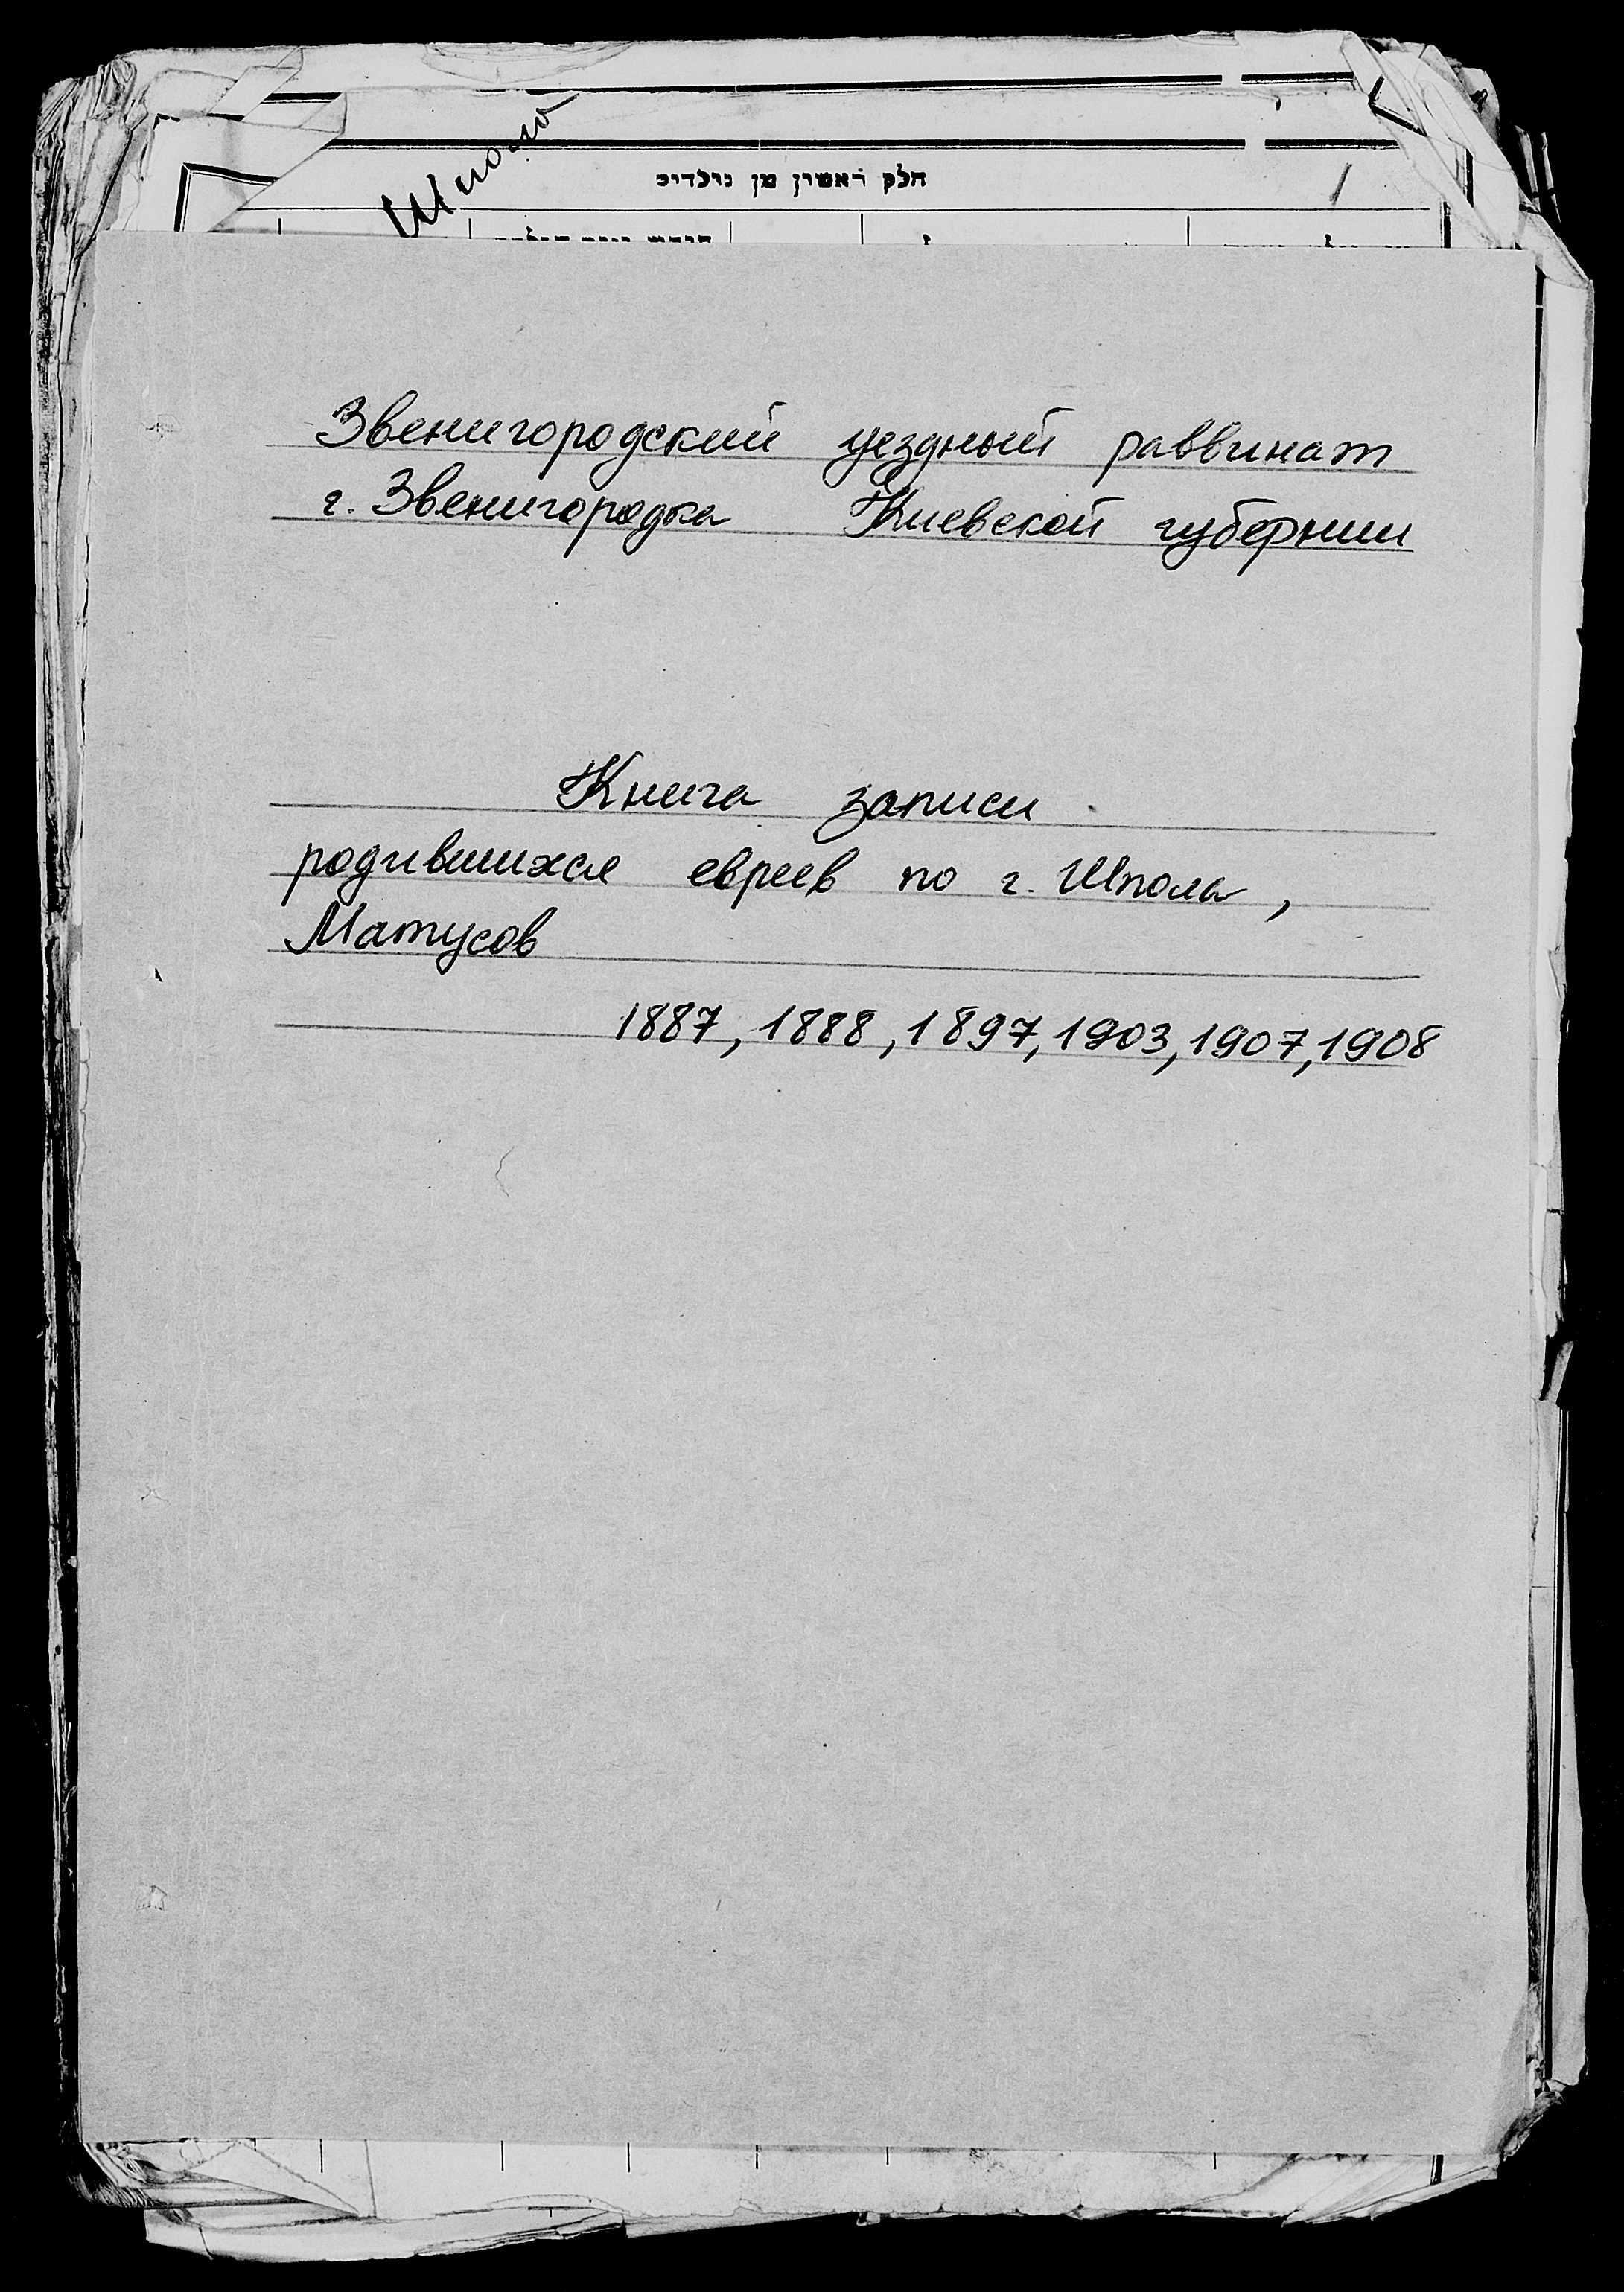 Шпола
חלק ראשון מן נולדים
1
Звенигородский уездный раввинат
г. Звенигородка Киевской губернии
Книга записи
родившихся евреев по г. Шпола,
Матусов
1887, 1888, 1897, 1903, 1907, 1908